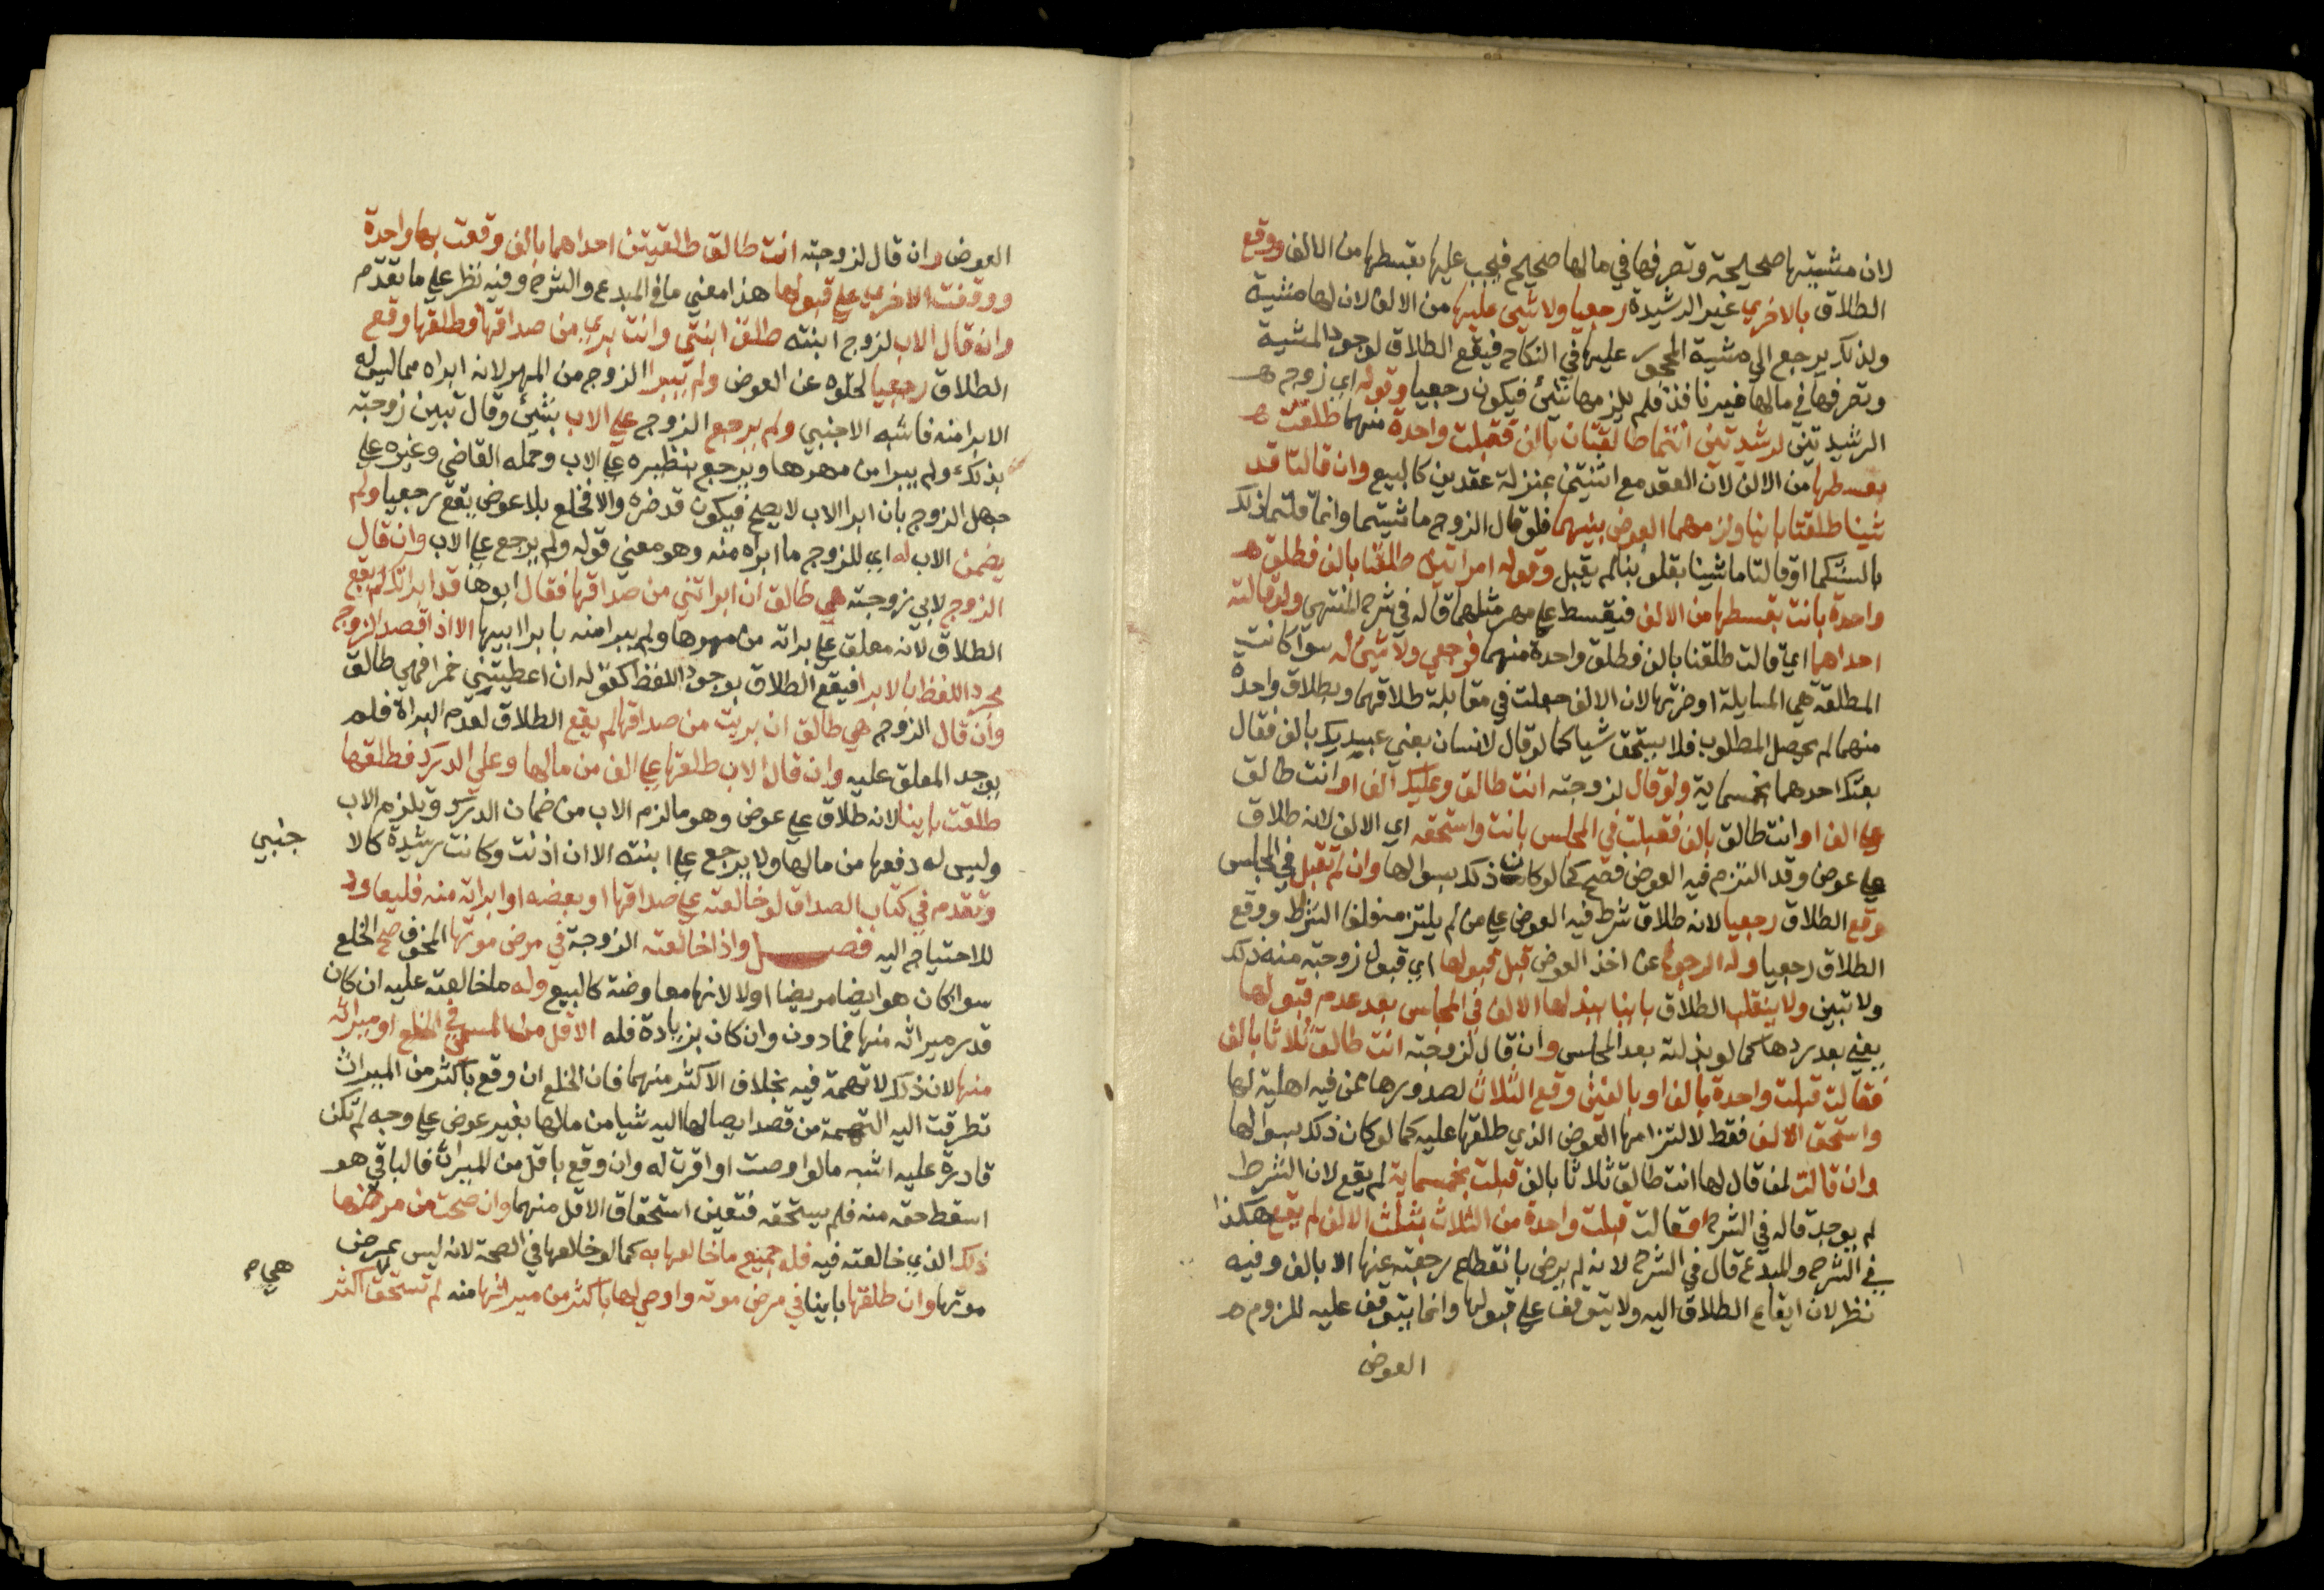 لان مشيتها صحيحة وتصرفها في مالها صحيح فيجب عليها بقسطها من الالف ووقع
الطلاق بالاخري غير الرشيدة رجعيا ولا شي عليها من الالف لان لها مشية
ولذلك يرجع الي مشية المحجور عليها في النكاح فيقع الطلاق لوجود المشية
وتصرفها في مالها غير نافذ فلم يلزمها شئ فيكون رجعيا وقوله اي زوج
الرشيدتين لرشيدتين انتما طالقتان بالف فقبلت واحدة منهما طلقت
بقسطها من الالف لان العقد مع اثنتين بمنزلة عقدين كالبيع وان قالتا قد
شينا طلقتا باينا ولزمهما العوض بينهما فلو قال الزوج ما شيتما وانما قلتما ذلك
بالسنتكما او قالتا ما شينا بقلوبنا لم يقبل وقوله امراتيه طلقنا بالف فطلق
واحدة بانت بقسطها من الالف فيقسط علي مهر مثلهما قاله في شرح المنتهي ولو قالته
احداهما اي قالت طلقنا بالف وطلق واحدة منهما فرجعي ولا شيئ له سوا كانت
المطلقة هي السايلة او ضرتها لان الالف جعلت في مقابلة طلاقهما وبطلاق واحدة
منهما لم يحصل المطلوب فلا يستحق شيا كما لو قال لانسان بعني عبديك بالف فقال
بعتك احدهما بخمسماية ولو قال لزوجته انت طالق وعليك الف او انت طالق
علي الف او انت طالق بالف فقبلت في المجلس بانت واستحقه اي الالف لانه طلاق
علي عوض وقد التزم فيه العوض فصح كما لو كان ذلك بسوالها وان لم تقبل في المجلس
وقع الطلاق رجعيا لانه طلاق شرط فيه العوض علي من لم يلتزمه فلغا الشرط ووقع
الطلاق رجعيا وله الرجوع عن اخذ العوض قبل قبولها اي قبول زوجته منه ذلك
ولا تبين ولا ينقلب الطلاق باينا ببذلها الالف في المجلس بعد عدم قبولها
يعني بعد ردها كما لو بذلته بعد المجلس وان قال لزوجته انت طالق ثلاثا بالف
فقالت قبلت واحدة بالف او بالفين وقع الثلاث لصدورها ممن فيه اهلية لها
واستحق الالف فقط لالتزامها العوض الذي طلقها عليه كما لو كان ذلك بسوالها
وان قالت لمن قال لها انت طالق ثلاثا بالف قبلت بخمسماية لم يقع لان الشرط
لم يوجد قاله في الشرح او قالت قبلت واحدة من الثلاث بثلث الالف لم يقع هكذا
في الشرح والمبدع قال في الشرح لانه لم يرض بانقطاع رجعته عنها الا بالف وفيه
نظر لان ايقاع الطلاق اليه ولا يتوقف علي قبولها وانما يتوقف عليه لزوم
العوض
العوض وان قال لزوجته انت طالق طلقتين احداهما بالف وقعت بها واحدة
ووقفت الاخري علي قبولها هذا معني ما في المبدع والشرح وفيه نظر علي ما تقدم
وان قال الاب لزوج ابنته طلق ابنتي وانت بري من صداقها فطلقها وقع
الطلاق رجعيا لخلوه عن العوض ولم يبرا الزوج من المهر لانه ابراه مما ليس له
الابرا منه فاشبه الاجنبي ولم يرجع الزوج علي الاب بشيئ وقال تبين زوجته
بذلك ولم يبرا من مهرها ويرجع بنظيره علي الاب وحمله القاضي وغيره علي
جهل الزوج بان ابرا الاب لا يصح فيكون قد غره والا فخلع بلا عوض يقع رجعيا ولم
يضمن الاب له اي للزوج ما ابراه منه وهو معني قوله ولم يرجع علي الاب وان قال
الزوج لابي زوجته هي طالق ان ابراتني من صداقها فقال ابوها قد ابراتك لم يقع
الطلاق لانه معلق علي براته من مهرها ولم يبرا منه بابرا ابيها الا اذا قصد الزوج
مجرد اللفظ بالابرا فيقع الطلاق بوجود اللفظ كقوله ان اعطيتني خمرا فهي طالق
وان قال الزوج هي طالق ان بريت من صداقها لم يقع الطلاق لعدم البراة فلم
يوجد المعلق عليه وان قال الاب طلقها علي الف من مالها وعلي الدرك فطلقها
طلقت باينا لانه طلاق علي عوض وهو ما لزم الاب من ضمان الدرك ويلزم الاب
وليس له دفعها من مالها ولا يرجع علي ابنته الا ان اذنت وكانت رشيدة كالا
جنبي
وتقدم في كتاب الصداق لو خالعته علي صداقها او بعضه او ابراته منه فليعاود
للاحتياج اليه فصل واذا خالعته الزوجة في مرض موتها المخوف صح الخلع
سوا كان هو ايضا مريضا اولا لانها معاوضة كالبيع وله ما خالعته عليه ان كان
قدر ميراثه منها فما دون وان كان بزيادة فله الاقل من المسمي في الخلع او ميراثه
منها لان ذلك لا تهمة فيه بخلاف الاكثر منهما فان الخلع ان وقع باكثر من الميراث
تطرقت اليه التهمة من قصد ايصالها اليه شيا من مالها بغير عوض علي وجه لم تكن
قادرة عليه اشبه ما لو اوصت او اقرت له وان وقع باقل من الميراث فالباقي هو
اسقط حقه منه فلم يستحقه فتعين استحقاق الاقل منهما وان صحت من مرضها
ذلك الذي خالعته فيه فله جميع ما خالعها به كما لو خالعها في الصحة لانه ليس بمرض
موتها وان طلقها باينا في مرض موته واوصي لها باكثر من ميراثها منه لم تستحق اكثر
هي